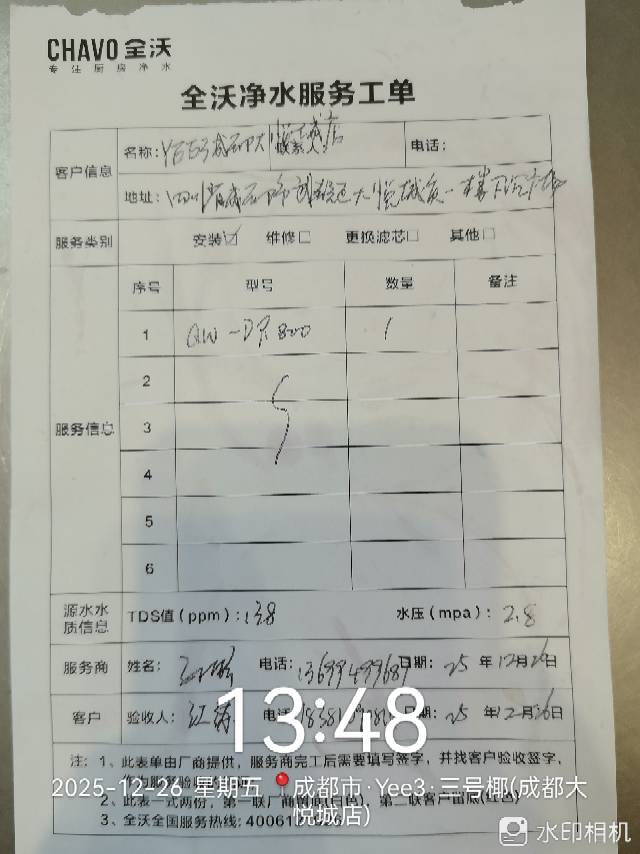 CHAVO 全沃
专注厨房净水
全沃净水服务工单
客户信息 名称: 联系人: 电话:
地址: 四川省成都市武侯区大悦城负一楼下沉广场
服务类别 安装☑ 维修□ 更换滤芯□ 其他□
服务信息 序号 型号 数量 备注
1 QW-DR800 1
2
3
4
5
6
源水水质信息 TDS值(ppm):138 水压(mpa): 2.8
服务商 姓名: 电话:13699499687 日期: 25 年12月26日
客户 验收人: 电话: 日期: 25 年12月26日
13:48
注: 1、此表单由厂商提供，服务商完工后需要填写签字，并找客户验收签字，
2、此表一式两份，第一联厂商留底(白色)，第二联客户留底(红色)
3、全沃全国服务热线: 40061
2025-12-26 星期五 成都市·Yee3·三号椰(成都大
悦城店)
水印相机